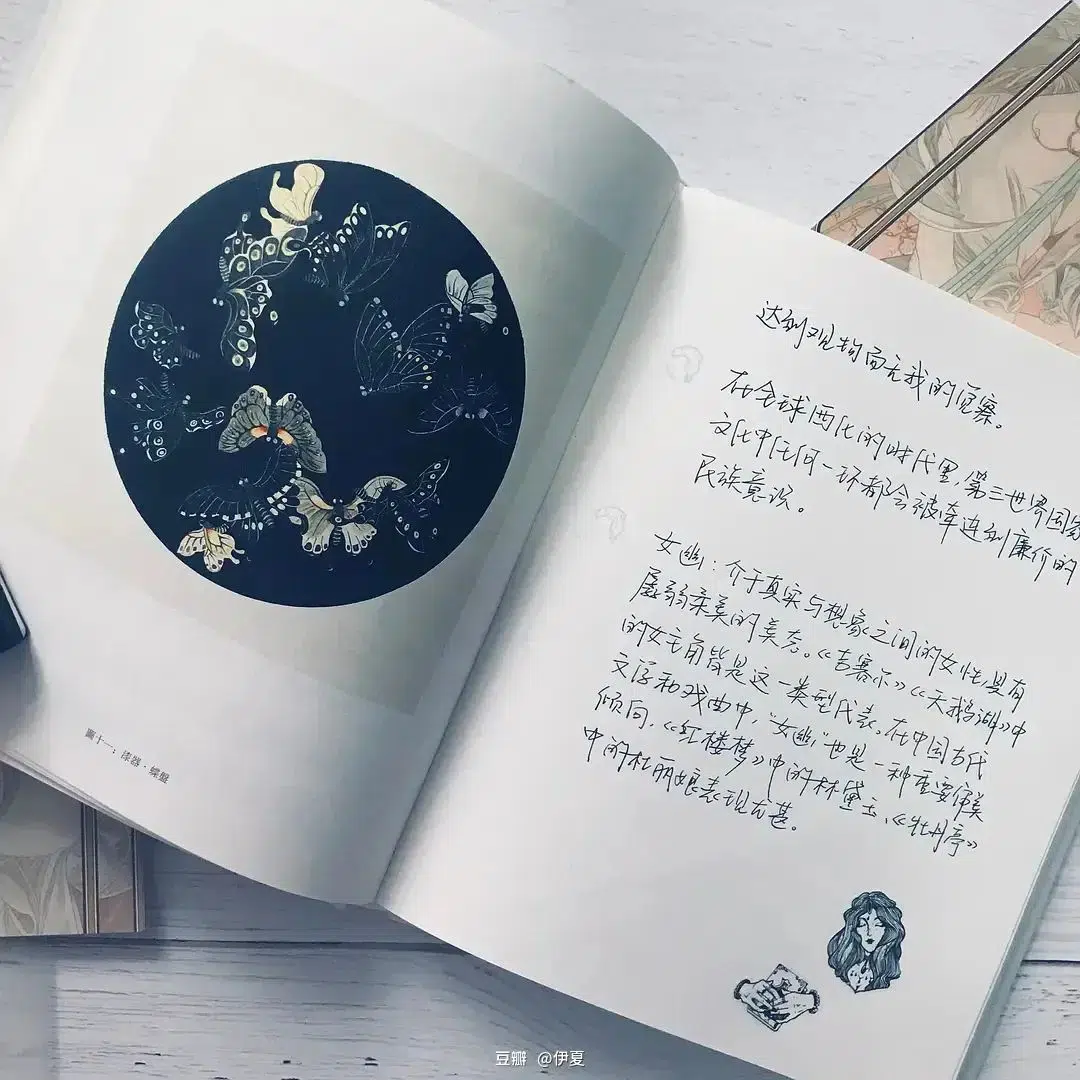 圖十一：漆器·蝶盤
达到观物而无我的洞察。
在全球西化的时代里，第三世界国家
文化中任何一环都会被牵连到廉价的
民族意识。
女幽：介于真实与想象之间的女性，具有
孱弱柔美的美态。《吉赛尔》《天鹅湖》中
的女主角皆是这一类型代表。在中国古代
文学和戏曲中，“女幽”也是一种重要审美
倾向，《红楼梦》中的林黛玉、《牡丹亭》
中的杜丽娘表现尤甚。
豆瓣 @伊夏